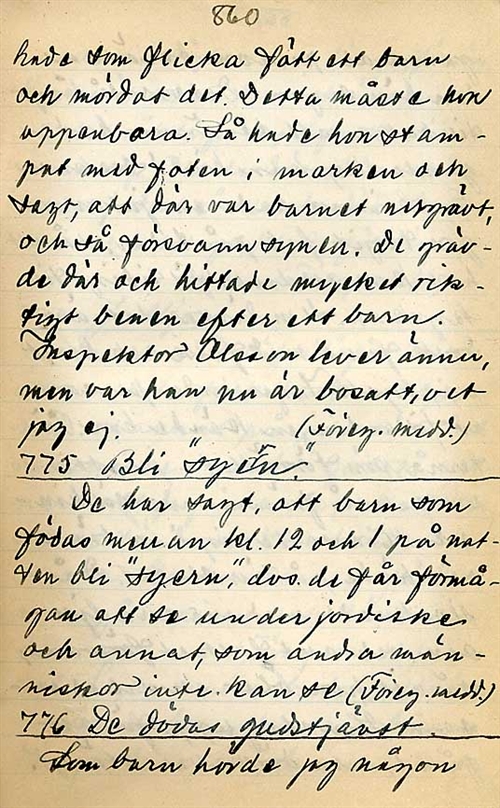 860
hade som flicka fått ett barn
och mördat det. Detta måste hon
uppenbara. Så hade hon stam-
pat med foten i marken och
sagt, att där var barnet nergrävt,
och så försvann synen. De gräv-
de där och hittade mycket rik-
tigt benen efter ett barn.
Inspektor Olsson lever ännu,
men var han nu är bosatt, vet
jag ej. (Föreg. medd.)
775 Bli "syern."
De har sagt, att barn som
födas mellan kl. 12 och 1 på nat-
ten bli "syern", dvs. de får förmå-
gan att se underjordiske
och annat, som andra män-
niskor inte kan se (Föreg. medd.)
776 De dödas gudstjänst.
Som barn horde jag någon